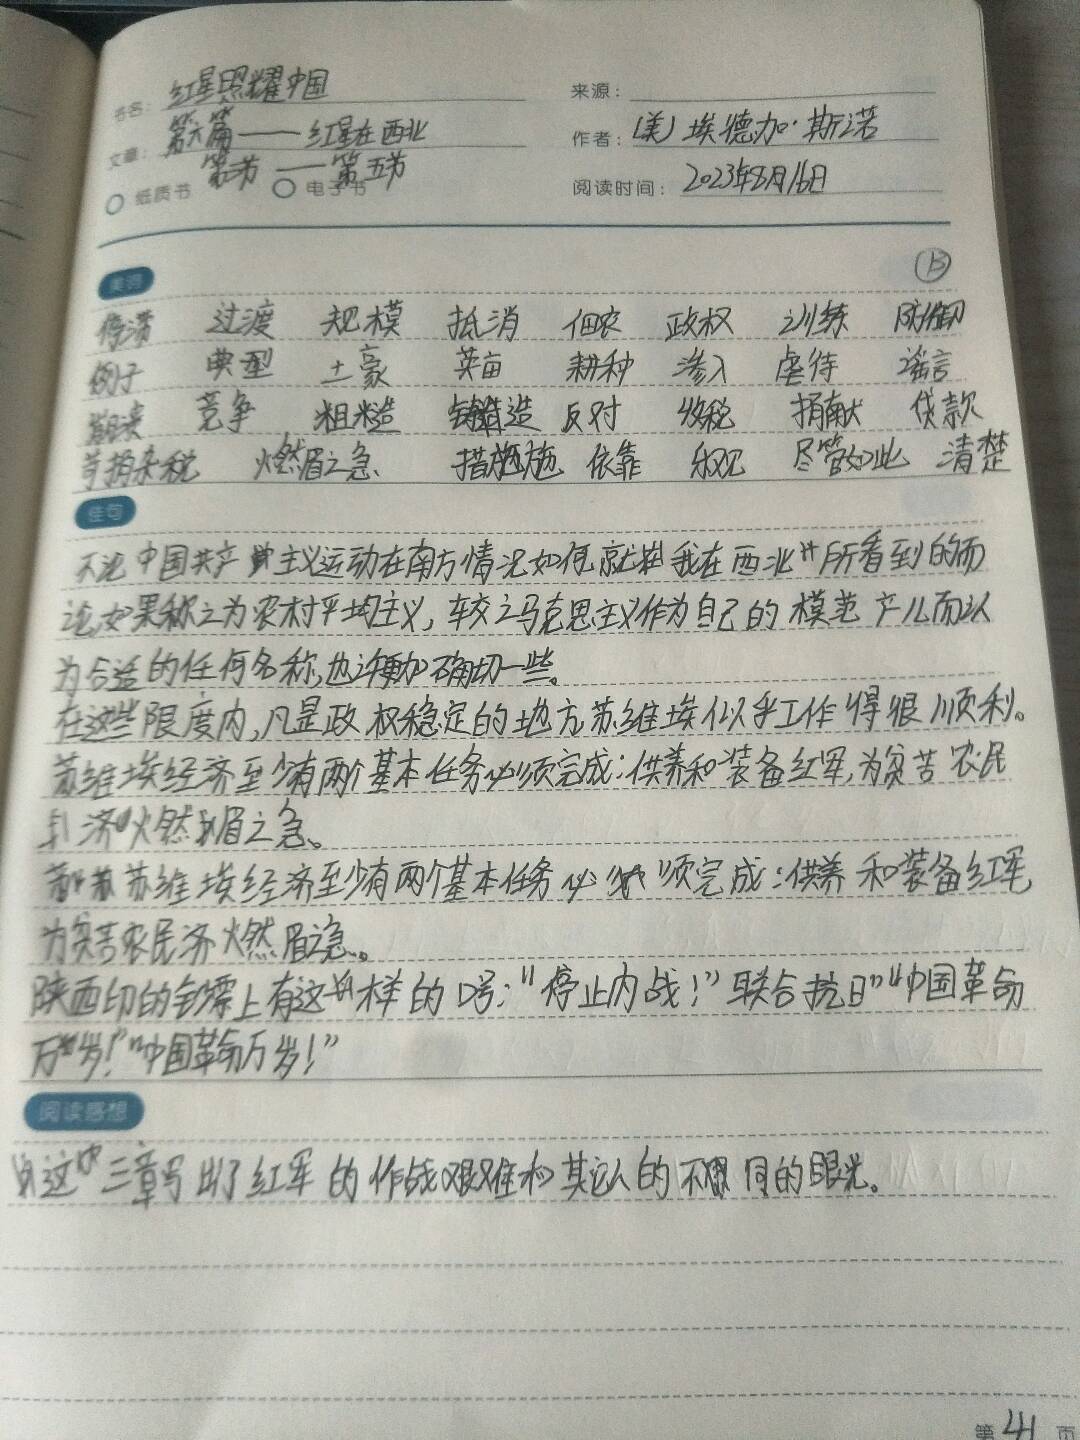 书名： 红星照耀中国 来源：
文章： 第六篇——红星在西北 作者： (美)埃德加·斯诺
纸质书 电子书 第三节——第五节 阅读时间： 2023年8月16日
美词 B
停滞 过渡 规模 抵消 佃农 政权 训练 防御
例子 典型 土豪 英亩 耕种 渗入 虐待 谣言
竞争 粗糙 铸造 反对 收税 捐献 贷款
苛捐杂税 火燃眉之急 措施 依靠 乐观 尽管如此 清楚
佳句
不论中国共产主义运动在南方情况如何,就我在西北所看到的而
论,如果称之为农村平均主义,较之马克思主义作为自己的模范产儿而认
为合适的任何名称,也许更加确切一些。
在这些限度内,凡是政权稳定的地方,苏维埃似乎工作得很顺利。
苏维埃经济至少有两个基本任务必须完成:供养和装备红军,为贫苦农民
济火燃眉之急。
苏维埃经济至少有两个基本任务必须完成:供养和装备红军
为贫苦农民济火燃眉之急。
陕西印的钞票上有这样的口号:"停止内战!"联合抗日""中国革命
万岁!""中国革命万岁!"
阅读感想
这三章写出了红军的作战艰难和其它人的不同的眼光。
第 41 页